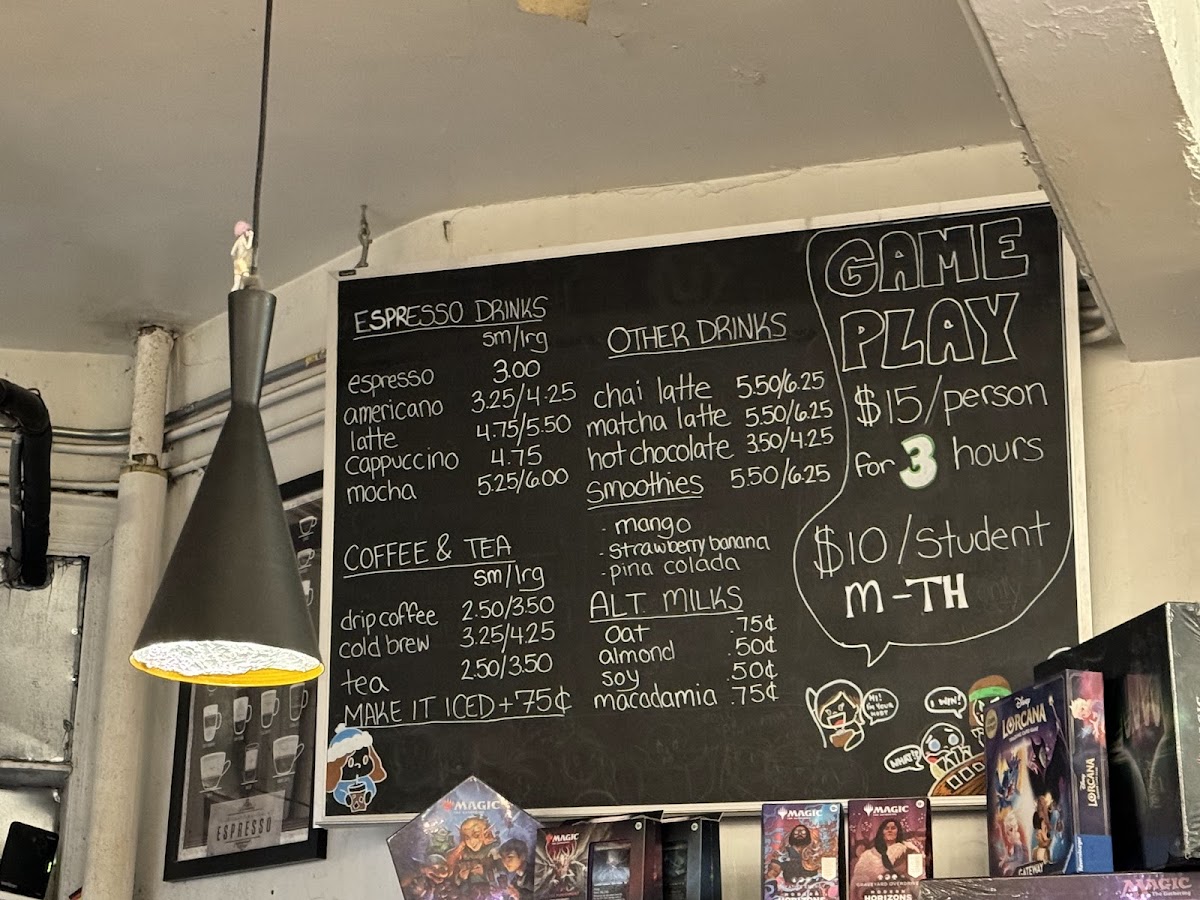 ESPRESSO DRINKS
sm/lrg
espresso 3.00
americano 3.25/4.25
latte 4.75/5.50
cappuccino 4.75
mocha 5.25/6.00
COFFEE & TEA
sm/lrg
drip coffee 2.50/3.50
cold brew 3.25/4.25
tea 2.50/3.50
MAKE IT ICED +75¢
OTHER DRINKS
chai latte 5.50/6.25
matcha latte 5.50/6.25
hot chocolate 3.50/4.25
smoothies 5.50/6.25
- mango
- strawberry banana
- pina colada
ALT. MILKS
oat .75¢
almond .50¢
soy .50¢
macadamia .75¢
GAME
PLAY
$15/person
for 3 hours
$10/student
M-TH only
HI!
I'M YOUR
HOST
I WIN!
WHAT!?
ESPRESSO
MAGIC
MAGIC
MAGIC
MODERN
HORIZONS
MAGIC
MODERN
HORIZONS
Disney
LORCANA
GATEWAY
Disney
LORCANA
Ravensburger
MAGIC
The Gathering